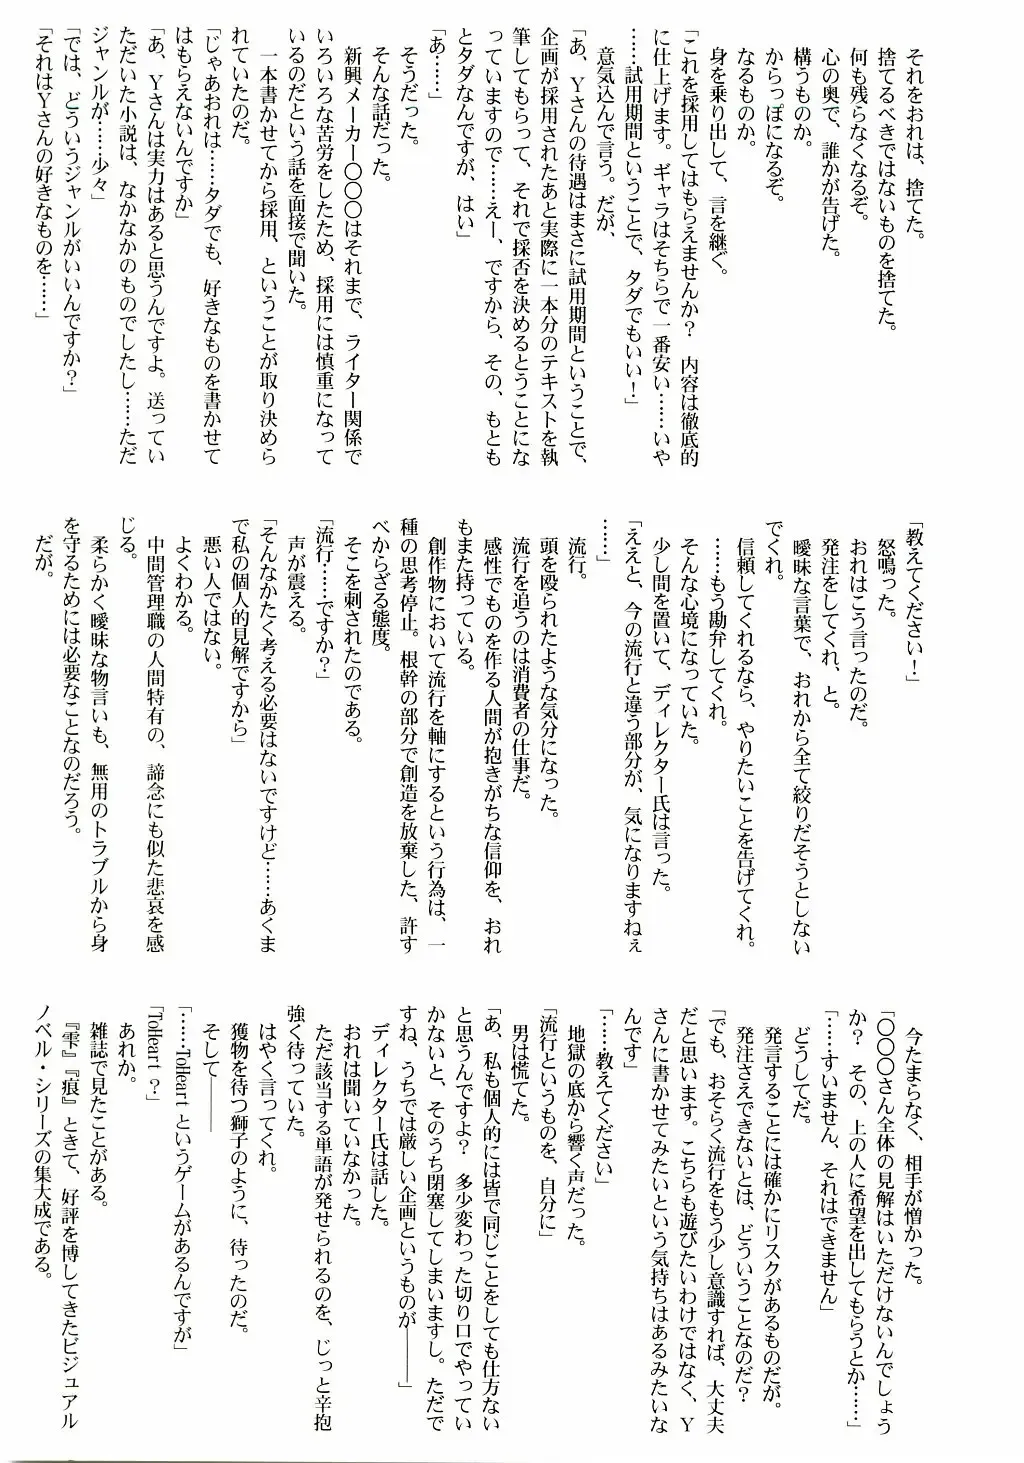 それをおれは、捨てた。
捨てるべきではないものを捨てた。
何も残らなくなるぞ。
心の奥で、誰かが告げた。
構うものか。
からっぽになるぞ。
なるものか。
身を乗り出して、言を継ぐ。
「これを採用してはもらえませんか？　内容は徹底的
に仕上げます。ギャラはそちらで一番安い……いや
……試用期間ということで、タダでもいい！」
意気込んで言う。だが、
「あ、Ｙさんの待遇はまさに試用期間ということで、
企画が採用されたあと実際に一本分のテキストを執
筆してもらって、それで採否を決めるとうことにな
っていますので……えー、ですから、その、もとも
とタダなんですが、はい」
「あ……」
そうだった。
そんな話だった。
新興メーカー〇〇〇はそれまで、ライター関係で
いろいろな苦労をしたため、採用には慎重になって
いるのだという話を面接で聞いた。
一本書かせてから採用、ということが取り決めら
れていたのだ。
「じゃあおれは……タダでも、好きなものを書かせて
はもらえないんですか」
「あ、Ｙさんは実力はあると思うんですよ。送ってい
ただいた小説は、なかなかのものでしたし……ただ
ジャンルが……少々」
「では、どういうジャンルがいいんですか？」
「それはＹさんの好きなものを……」
「教えてください！」
怒鳴った。
おれはこう言ったのだ。
発注をしてくれ、と。
曖昧な言葉で、おれから全て絞りだそうとしない
でくれ。
信頼してくれるなら、やりたいことを告げてくれ。
……もう勘弁してくれ。
そんな心境になっていた。
少し間を置いて、ディレクター氏は言った。
「ええと、今の流行と違う部分が、気になりますねぇ
……」
流行。
頭を殴られたような気分になった。
流行を追うのは消費者の仕事だ。
感性でものを作る人間が抱きがちな信仰を、おれ
もまた持っている。
創作物において流行を軸にするという行為は、一
種の思考停止。根幹の部分で創造を放棄した、許す
べからざる態度。
そこを刺されたのである。
「流行……ですか？」
声が震える。
「そんなかたく考える必要はないですけど……あくま
で私の個人的見解ですから」
悪い人ではない。
よくわかる。
中間管理職の人間特有の、諦念にも似た悲哀を感
じる。
柔らかく曖昧な物言いも、無用のトラブルから身
を守るためには必要なことなのだろう。
だが。
今たまらなく、相手が憎かった。
「〇〇〇さん全体の見解はいただけないんでしょう
か？　その、上の人に希望を出してもらうとか……」
「……すいません、それはできません」
どうしてだ。
発言することには確かにリスクがあるものだが。
発注さえできないとは、どういうことなのだ？
「でも、おそらく流行をもう少し意識すれば、大丈夫
だと思います。こちらも遊びたいわけではなく、Ｙ
さんに書かせてみたいという気持ちはあるみたいな
んです」
「……教えてください」
地獄の底から響く声だった。
「流行というものを、自分に」
男は慌てた。
「あ、私も個人的には皆で同じことをしても仕方ない
と思うんですよ？　多少変わった切り口でやってい
かないと、そのうち閉塞してしまいますし。ただで
すね、うちでは厳しい企画というものが――」
ディレクター氏は話した。
おれは聞いていなかった。
ただ該当する単語が発せられるのを、じっと辛抱
強く待っていた。
はやく言ってくれ。
獲物を待つ獅子のように、待ったのだ。
そして――
「……ToHeartというゲームがあるんですが」
「ToHeart？」
あれか。
雑誌で見たことがある。
『雫』『痕』ときて、好評を博してきたビジュアル
ノベル・シリーズの集大成である。